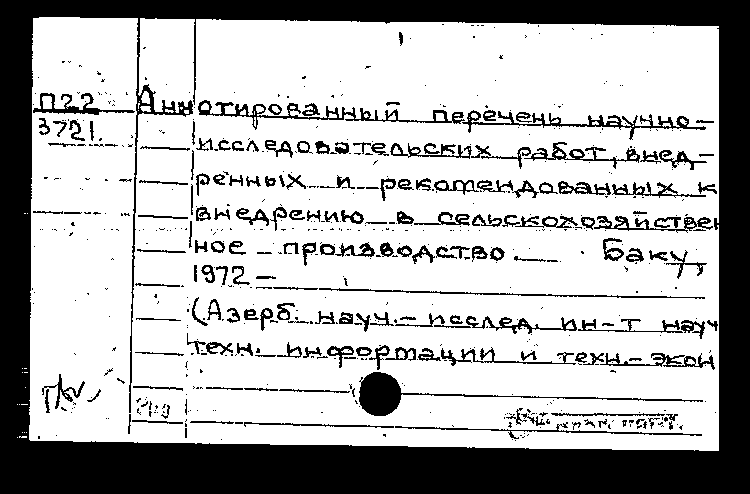 П22 Аннотированный перечень научно-
3721. исследовательских работ, внед-
ренных и рекомендованных к
внедрению в сельскохозяйствен
ное производство. Баку,
1972 –
(Азерб. науч.- исслед. ин-т науч
техн. информации и техн.- экон